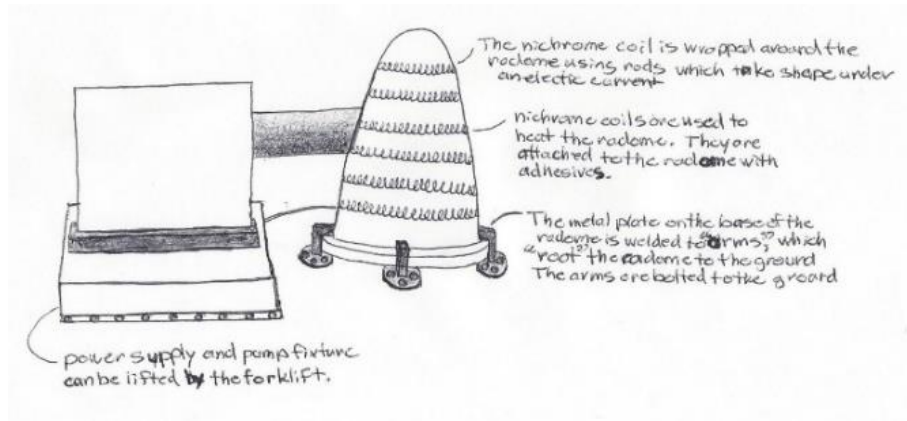 The nichrome coil is wrapped around the
radome using rods which take shape under
an electic current
nichrome coils are used to
heat the radome. They are
attached to the radome with
adhesives.
The metal plate on the base of the
radome is welded to "arms," which
"root" the radome to the ground
The arms are bolted to the ground
power supply and pump fixture
can be lifted by the forklift.